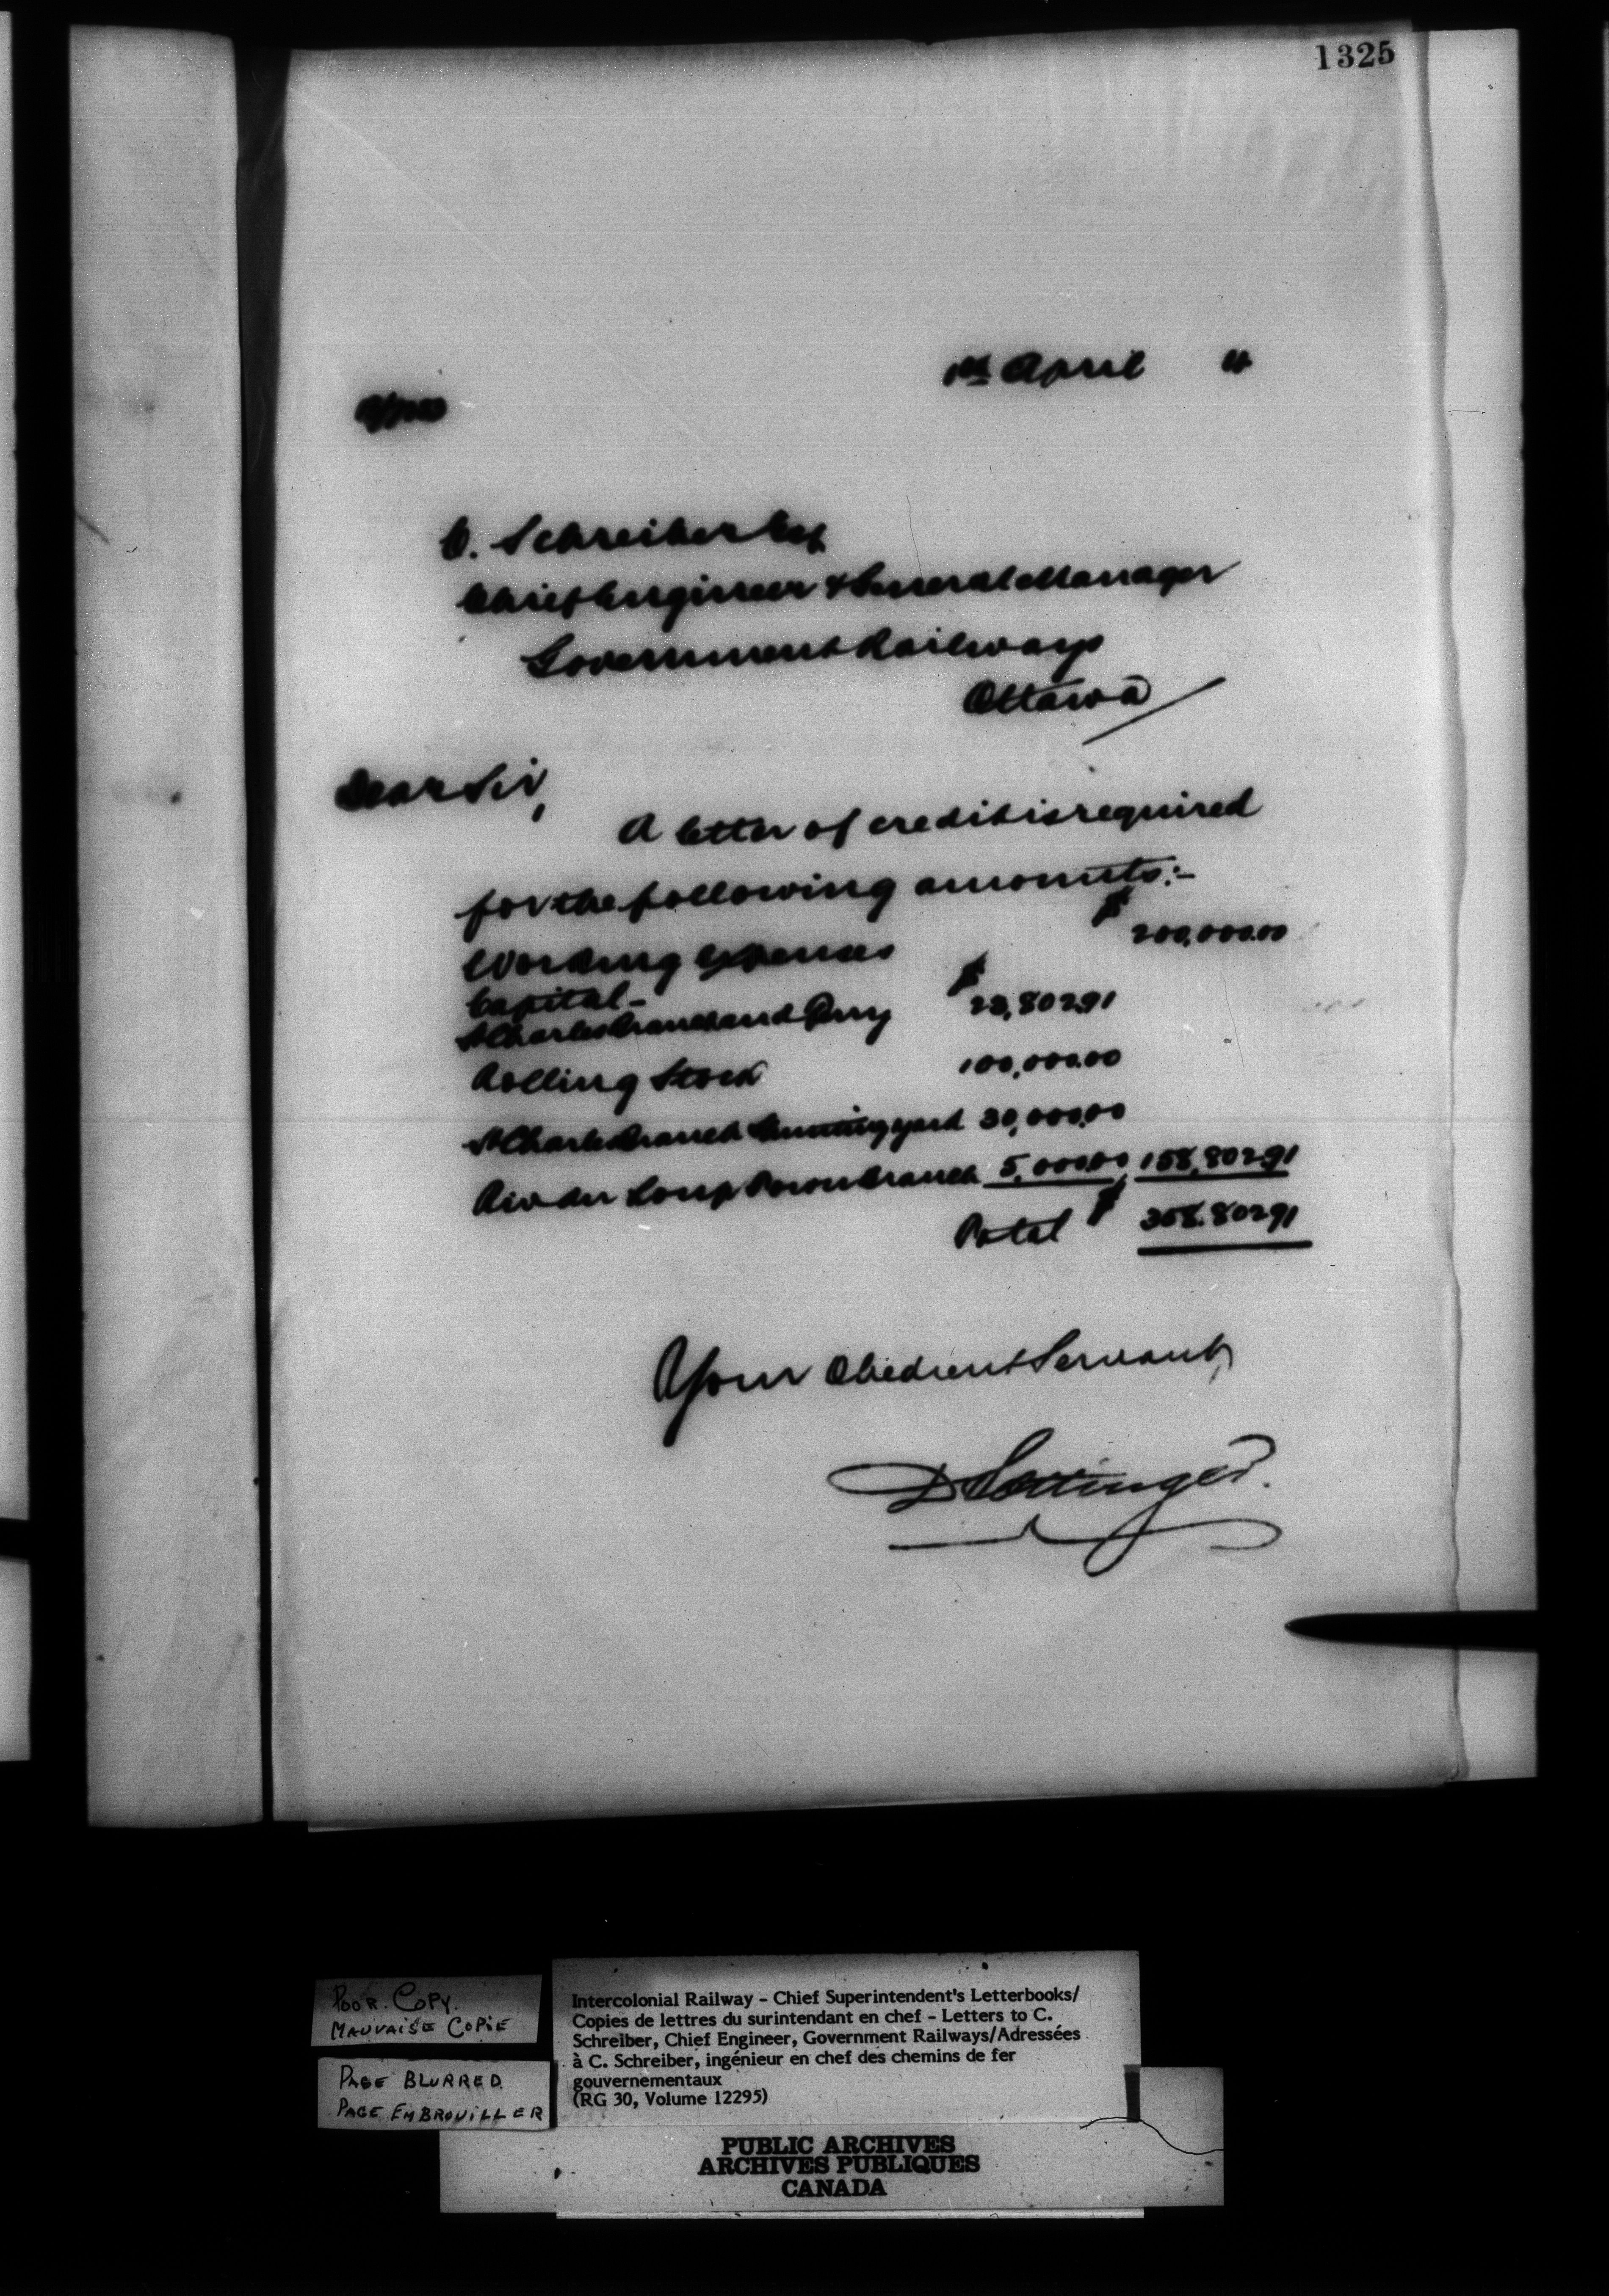 1325
1st April "
C. Schreiber Esq
Chief Engineer & General Manager
Government Railways
Ottawa
Dear Sir,
A letter of credit is required
for the following amounts:-
Working Expenses $ 200,000.00
Capital -
St Charles Branch and Ferry $ 23,802.91
Rolling Stock 100,000.00
St Charles Branch Shunting yard 30,000.00
Riv du Loup Town Branch 5,000.00 158,802.91
Total $ 358.802.91
Your Obedient Servant,
D Pottinger.
POOR COPY.
MAUVAISE COPIE
PAGE BLURRED.
PAGE EMBROUILLER
Intercolonial Railway - Chief Superintendent's Letterbooks/
Copies de lettres du surintendant en chef - Letters to C.
Schreiber, Chief Engineer, Government Railways/Adressées
à C. Schreiber, ingénieur en chef des chemins de fer
gouvernementaux
(RG 30, Volume 12295)
PUBLIC ARCHIVES
ARCHIVES PUBLIQUES
CANADA